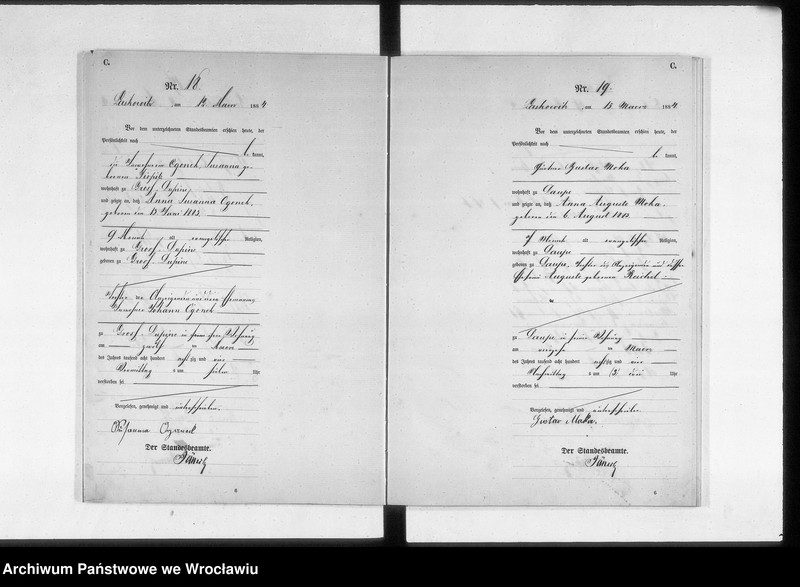 C.
Nr. 18.
Leskowitz, am 12 Maerz 1884
Vor dem unterzeichneten Standesbeamten erschien heute, der
Persönlichkeit nach
kannt,
die Inwohnerin Ogonek, Susanna ge-
borenen
wohnhaft zu Gross Dupine,
und zeigte an, daß Anna Susanna Ogonek,
geboren den 13. Juni 1883.
9 Monat alt evangelischer Religion,
wohnhaft zu Gross Dupin
geboren zu Gross Dupin
Tochter der Anzeigerin und ihres Ehemannes,
Inwohner Johann Ogonek
zu Gross Dupine in seiner Wohnung
am zwölf ten Maerz
des Jahres tausend acht hundert achtzig und vier
Vormittag s um sieben Uhr
verstorben sei
Vorgelesen, genehmigt und unterschrieben.
Susanna
Der Standesbeamte.
6
C.
Nr. 19.
Leskowitz, am 15 Maerz 1884
Vor dem unterzeichneten Standesbeamten erschien heute, der
Persönlichkeit nach
kannt,
Gustav Moka
wohnhaft zu Daupe
und zeigte an, daß Anna Auguste Moka,
geboren den 6. August 1883.
7 Monat alt evangelischer Religion,
wohnhaft zu Daupe
geboren zu Daupe, Tochter des Anzeigenden und dessen
Ehefrau Auguste geborenen Reichel
zu
zu Daupe in seiner Wohnung
am ten Maerz
des Jahres tausend acht hundert achtzig und vier
Nachmittag s um (3) drei Uhr
verstorben sei
Vorgelesen, genehmigt und unterschrieben
Gustav Moka.
Der Standesbeamte.
6
Archiwum Państwowe we Wrocławiu